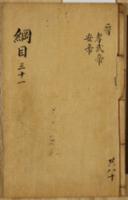 晉
孝武帝
安帝
綱目 三十一
共八十